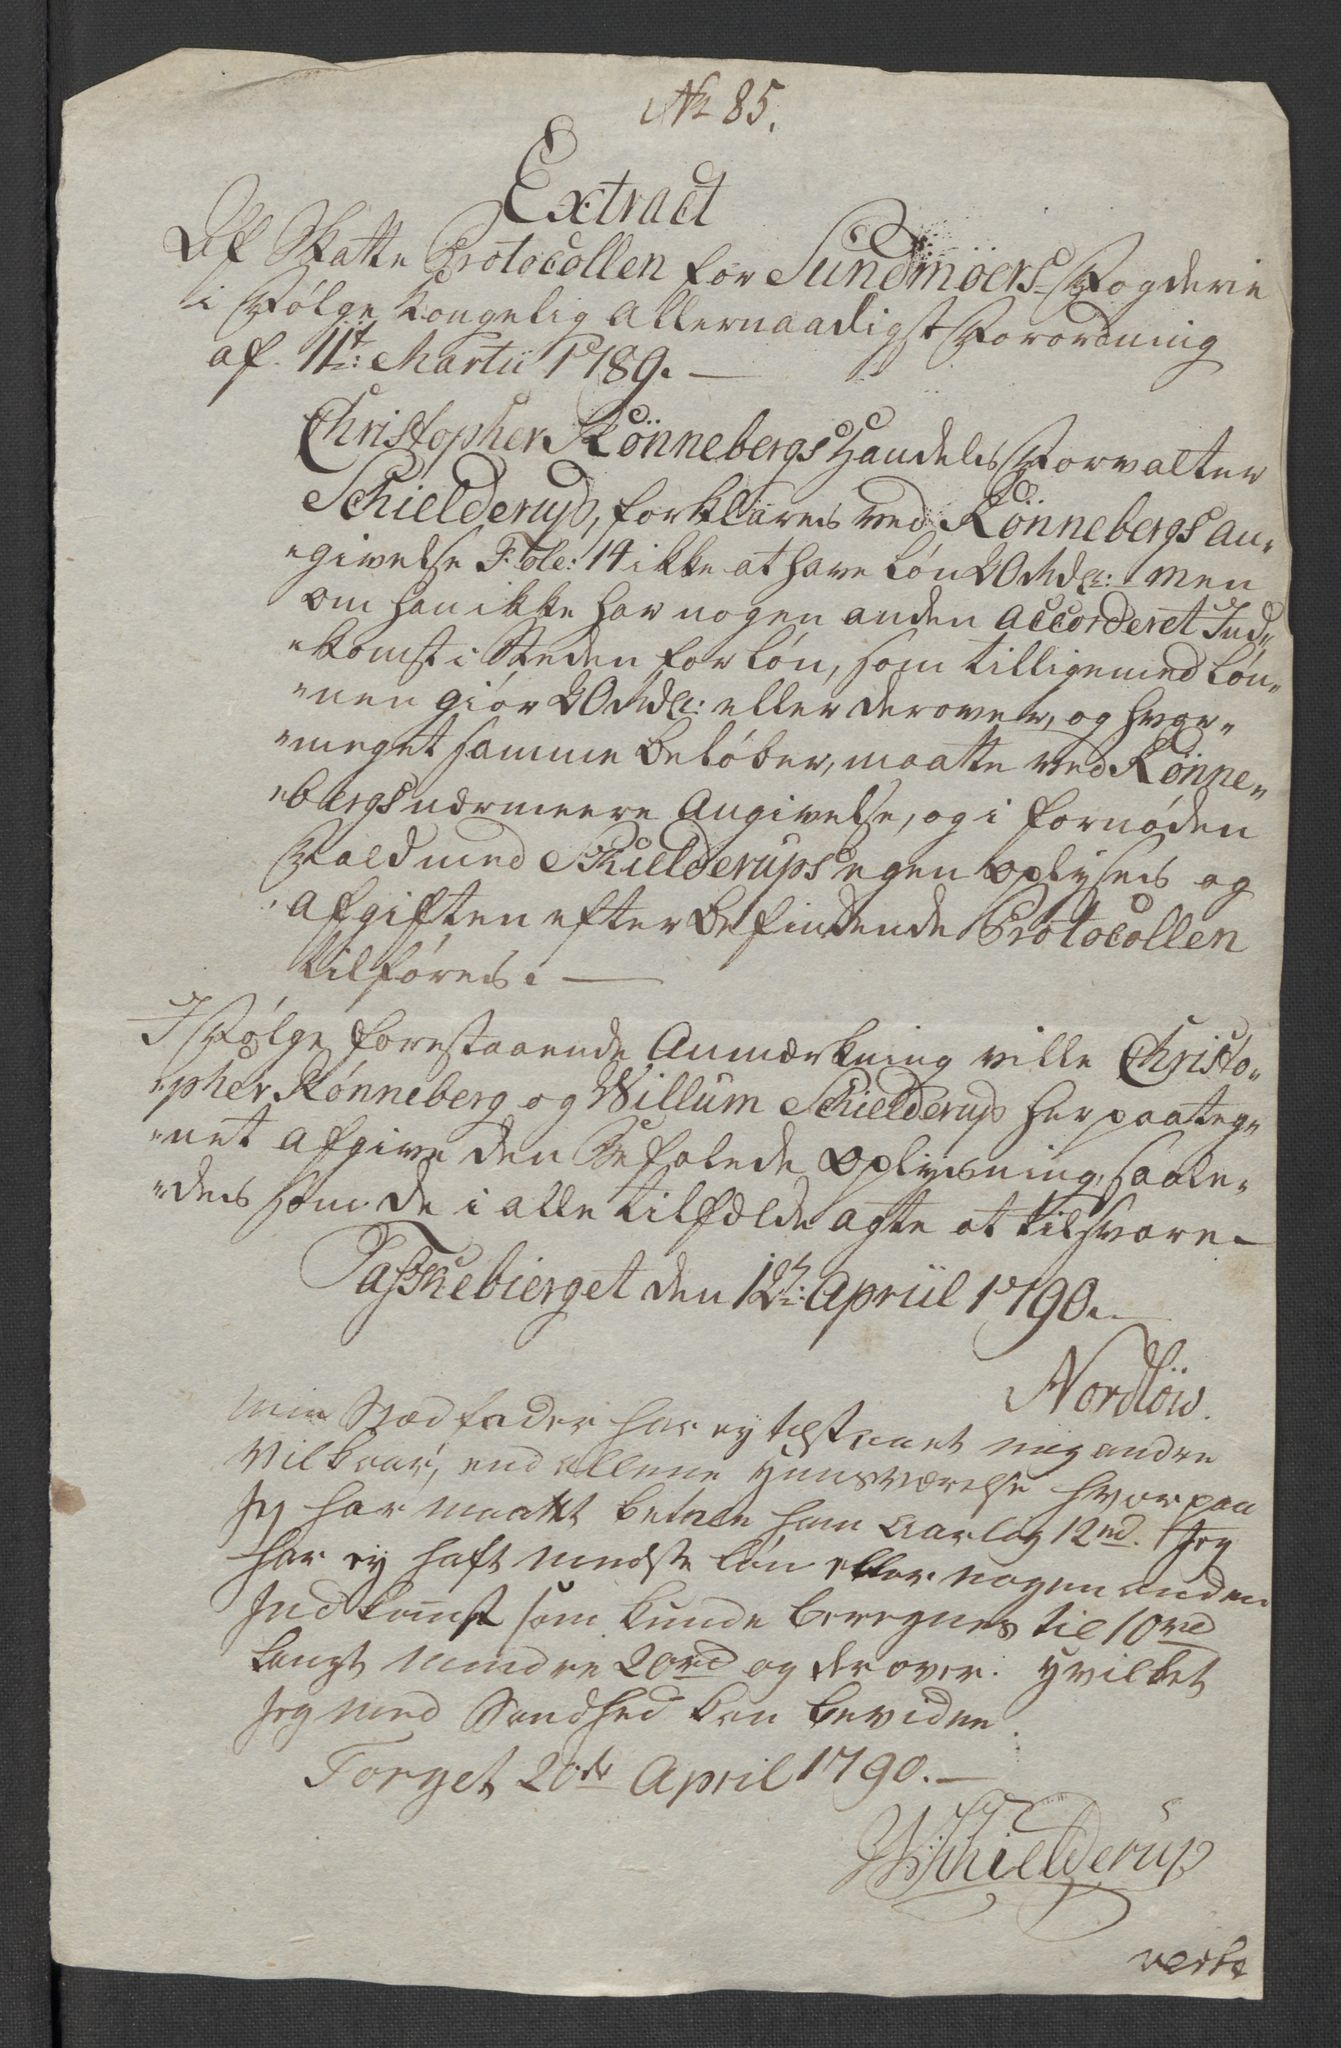 No 85.
Extract
Af Skatte Protocollen for Sundmöers Fogderie
i Følge Kongelig Allernaadigst Forordning
af 11t: Martii 1789.
Christopher Rönnebergs Handels Forvalter
Schielderup, forklares ved Rönnebergs an-
givelse Fole: 14 ikke at have Løn 20 Rdlr: men
om han ikke har nogen anden accorderet Ind-
komst i Steden for Løn, som tilligemed Løn-
nen giør 20 Rdlr: eller derover, og hvor-
meget samme beløber, maatte ved Rønne-
bergs nærmeere Angivelse, og i fornøden
Fald med Schielderups egen oplyses og
afgiften efter befindende Protocollen
tilføres.
I Følge forestaaende Anmærkning ville Christo-
pher Rönneberg og Willum Schielderup her paateg-
net afgive den befalede oplysning, saale-
des som de i alle tilfælde agte at tilsvare.
Taskebierget den 12te: Apriil 1790.
Nordlöw.
Min Stædfader har ey tilstaaet mig andre
Vilkaar, end allene Huusværelse hvorpaa
jeg har maatt betale ham aarlig 12 rd. Jeg
har ey haft mindste løn eller nogen anden
Indkomst som kunde beregnes til 10 rd
langt mindre 20 rd og derover. Hvilket
jeg med Sandhed kan bevidne.
Torget 20de April 1790.
W Schielderup
verte